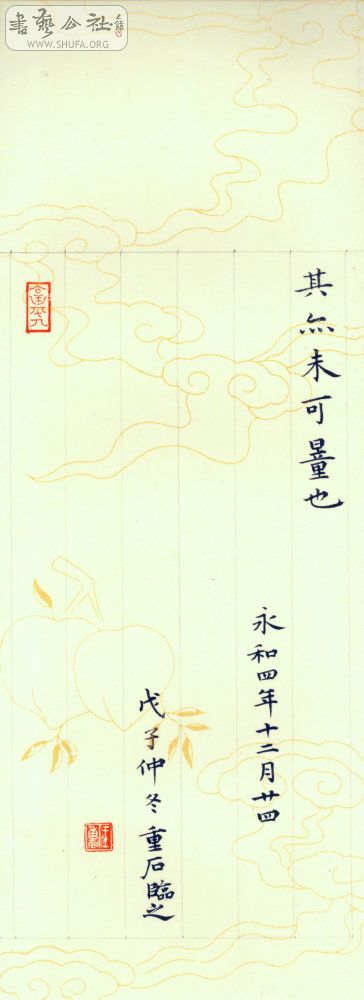 書藝公社
WWW.SHUFA.ORG
其亦未可量也
永和四年十二月廿四
戊子仲冬重石臨之